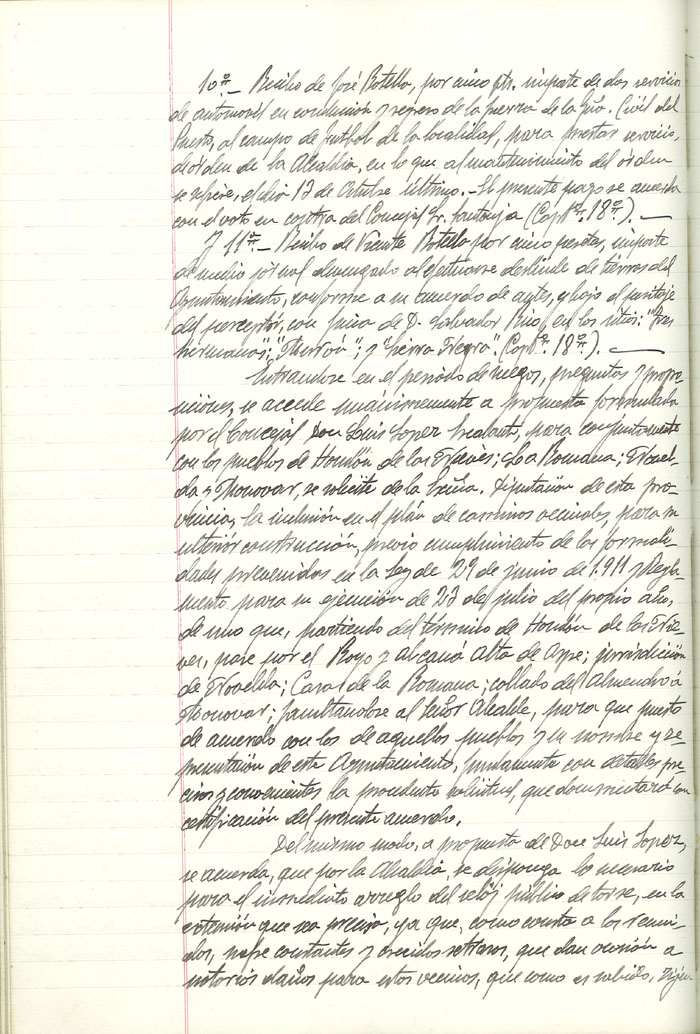 10º.- Recibo de José Botella, por cinco pts. importe de dos servicios
de automovil en conducion y regreso de la fuerza de la Gña. Civil del
Puesto, al campo de futbol de la localidad, para prestar servicio,
de órden de la Alcaldia, en lo que al mantenimiento del órden
se refiere, el dia 13 de Octubre último.- El presente pago se acuerda
con el voto en contra del Concejal Sr. Santonja (Capº. 18º.). —
Y 11º.- Recibo de Vicente Botella por cinco pesetas, importe
de medio jornal devengado al efectuarse deslinde de tierras del
Ayuntamiento, conforme a su acuerdo de antes, y bajo el peritaje
del perceptor, con junio de D. Salvador Pico, en los sitios: "Tres
hermanos"; y "Sierra Negra". (Capº. 18º.). —
Entrandose en el periodo de ruegos, preguntas y propo-
siciones, se accede unánimemente a propuesta formulada
por el Concejal Don Luis Lopez para conjuntamente
con los pueblos de Hondón de las Nieves; La Romana; Novel-
da y Monovar, se solicite de la Exma. Diputación de esta pro-
vincia, la inclusión en el plán de caminos vecinales, para su
ulteriór construcción, previo cumplimiento de las formali-
dades prevenidas en la Ley de 29 de junio de 1.911 y Regla-
mento para su ejecución de 23 de julio del propio año,
de uno que, partiendo del término de Hondón de las Nie-
ves, pase por el Royo y alcaná Alta de Aspe; jurisdicción
de Novelda; Casas de la Romana; collado del Almendro á
Monovar; facultandose al Señor Alcalde, para que puesto
de acuerdo con los de aquellos pueblos y en nombre y re-
presentación de este Ayuntamiento, juntamente con detalles pre-
cisos y convenientes la procedente solicitud, que documentará con
certificación del presente acuerdo.
Del mismo modo, a propuesta de Don Luis Lopez,
se acuerda, que por la Alcaldia, se disponga lo necesario
para el inmediato arreglo del reloj público de torre, en la
extensión que sea precisa, ya que, como consta a los reuni-
dos, sufre constantes y crecidos retrasos, que dan ocasión a
notorios daños para estos vecinos, que como es sabido, rigen